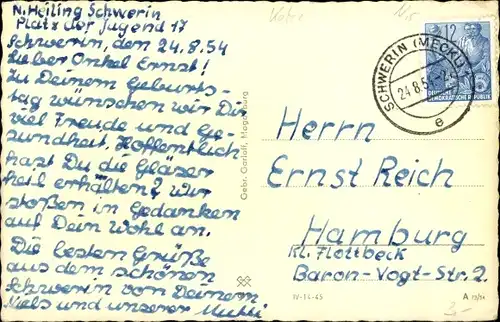 N. Heiling Schwerin
Platz der Jugend 17
Schwerin, den 24.8.54
Lieber Onkel Ernst!
Zu Deinem Geburts-
tag wünschen wir Dir
viel Freude und Ge-
sundheit. Hoffentlich
hast Du die Gläser
heil erhalten? Wir
stoßen in Gedanken
auf Dein Wohl an.
Die besten Grüße
aus dem schönen
Schwerin von Deinem
Niels und unserer Mutti
Gebr. Garloff, Magdeburg
12
DEUTSCHE
DEMOKRATISCHE REPUBLIK
SCHWERIN (MECKL)
24.8.54
e
Herrn
Ernst Reich
Hamburg
Kl. Flottbeck
Baron-Vogt-Str. 2.
IV-14-45